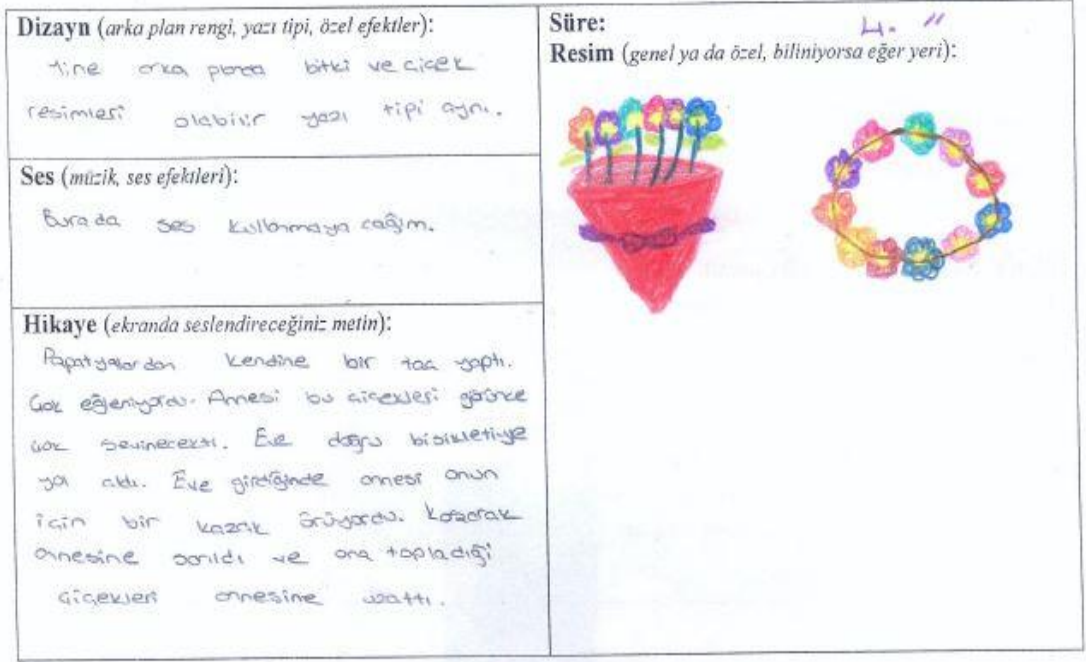 Dizayn (arka plan rengi, yazı tipi, özel efektler):
Yine arka planda bitki ve çiçek
resimleri olabilir yazı tipi aynı.
Ses (müzik, ses efektleri):
Burada ses kullanmayacağım.
Hikaye (ekranda seslendireceğiniz metin):
Papatyalardan kendine bir taç yaptı.
Çok eğleniyordu. Annesi bu çiçekleri görünce
çok sevinecekti. Eve doğru bisikletiyle
yol aldı. Eve girdiğinde annesi onun
için bir kazak örüyordu. Koşarak
annesine sarıldı ve ona topladığı
çiçekleri annesine uzattı.
Süre: 4. "
Resim (genel ya da özel, biliniyorsa eğer yeri):